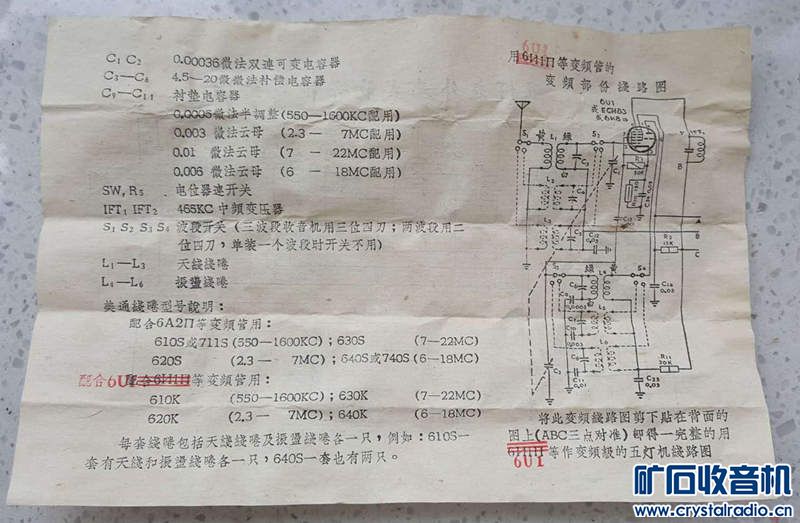 C₁ C₂ 0.00036微法双連可变电容器
C₃—C₈ 4.5—20微微法补償电容器
C₉—C₁₁ 衬垫电容器
0.0005微法半調整(550—1600KC配用)
0.003 微法云母 (2.3— 7MC配用)
0.01 微法云母 (7 — 22MC配用)
0.006 微法云母 (6 — 18MC配用)
SW, R₅ 电位器連开关
IFT₁ IFT₂ 465KC中頻变压器
S₁ S₂ S₃ S₄ 波段开关(三波段收音机用三位四刀;两波段用二
位四刀,单装一个波段时开关不用)
L₁—L₃ 天綫綫捲
L₄—L₆ 振盪綫捲
美通綫捲型号說明:
配合6A2П等变頻管用:
610S或711S (550—1600KC); 630S (7—22MC)
620S (2.3— 7MC); 640S或740S (6—18MC)
配合6U1等变頻管用:
610K (550—1600KC); 630K (7—22MC)
620K (2.3— 7MC); 640K (6—18MC)
每套綫捲包括天綫綫捲及振盪綫捲各一只,例如:610S一
套有天綫和振盪綫捲各一只,640S一套也有两只。
6U1
用6И1П等变頻管的
变頻部份綫路图
6U1
或ECH83
S₁
黄
L₁
綠
S₂
B
C
R₂
C₁₆
0.05
R₁₁
C₂₃
0.05
将此变頻綫路图剪下貼在背面的
图上(ABC三点对准)即得一完整的用
6И1П等作变頻級的五灯机綫路图
6U1
矿石收音机
www.crystalradio.cn